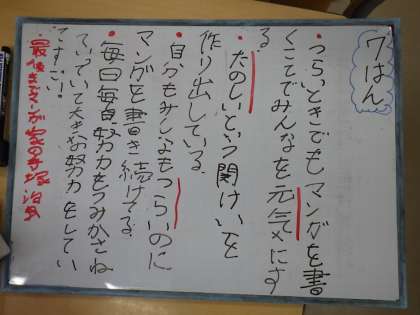 7はん
・つらいときでもマンガを書
くことでみんなを元気にす
る
・たのしいという関けいを
作り出している。
・自分もみじょもつらいのに
マンガを書き続けてる。
・毎日毎日努力をつみかさね
ていっていて大きな努力をしてい
てすごい!
・最後までマンガ家の手塚治虫